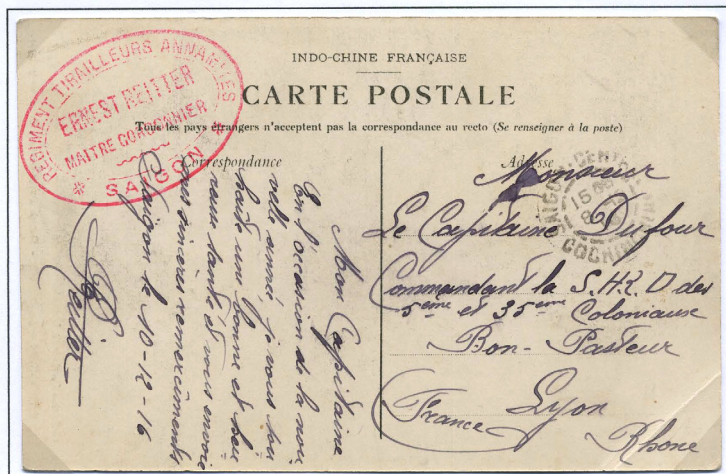 INDO-CHINE FRANÇAISE
CARTE POSTALE
Tous les pays étrangers n'acceptent pas la correspondance au recto (Se renseigner à la poste)
Correspondance
Adresse
REGIMENT TIRAILLEURS ANNAMITES
ERNEST REITTER
MAITRE CORDONNIER
* SAIGON *
Mon Capitaine
En l'occasion de la nou
velle année, je vous sou
haite une bonne et heu
reuse santé et vous envoie
mes sincères remerciements
Saigon le 10-12-16
Reitter
SAIGON-CENTRAL
15
COCHINCHINE
Monsieur
Le Capitaine Dufour
Commandant la S.H.R.D des
5eme et 35eme Coloniaux
Bon-Pasteur
Lyon
(France)
Rhone